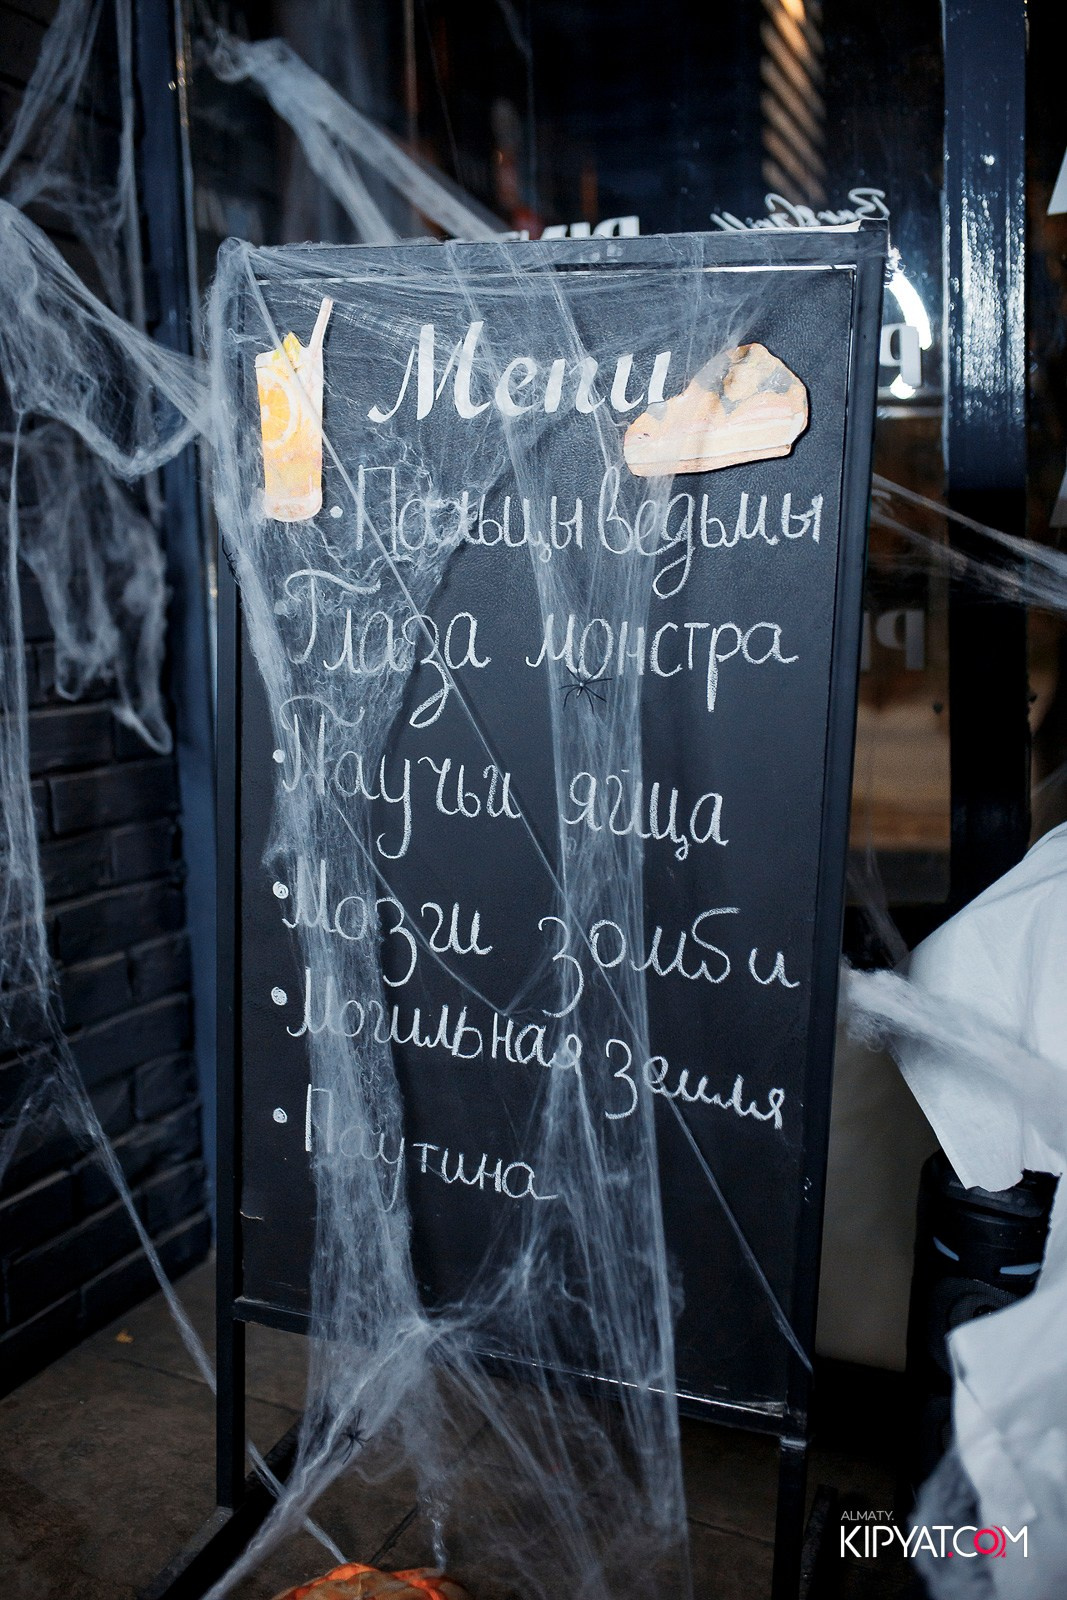 Bar&Grill
Menu
• Пальцы ведьмы
Глаза монстра
• Паучьи яйца
• Мозги зомби
• Могильная земля
• Паутина
ALMATY.
KIPYAT.COM